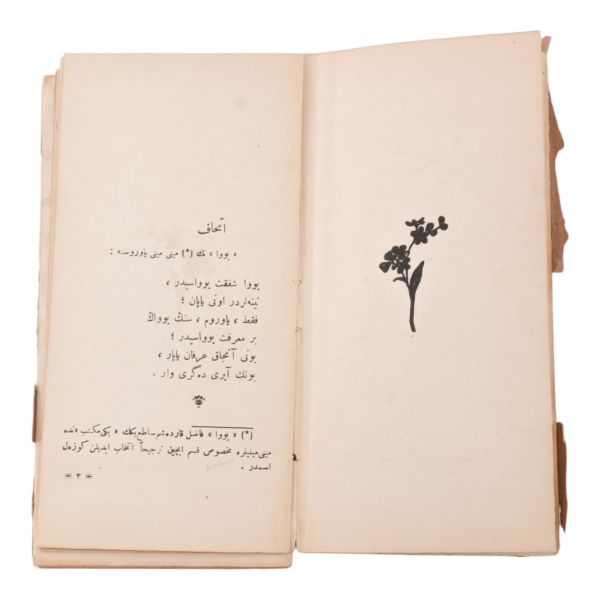 اتحاف
« یووا » نك [*] مینی مینی یاوروسنه :
یووا شفقت یوواسیدر ،
نینه‌لردر اونی یاپان ؛
فقط ، یاوروم ، سنك یوواڭ
بر معرفت یوواسیدر ؛
بونی آنجاق عرفان یاپار ،
بونك آیری ده‌گری وار .
[*] « یووا » فاضل قارده‌شم ساطع بكك « یكی مكتب » نده
مینی‌مینیلره مخصوص قسم ایچین ترجیحاً انتخاب ایدیلن كوزه‌ل
اسمدر .
٣